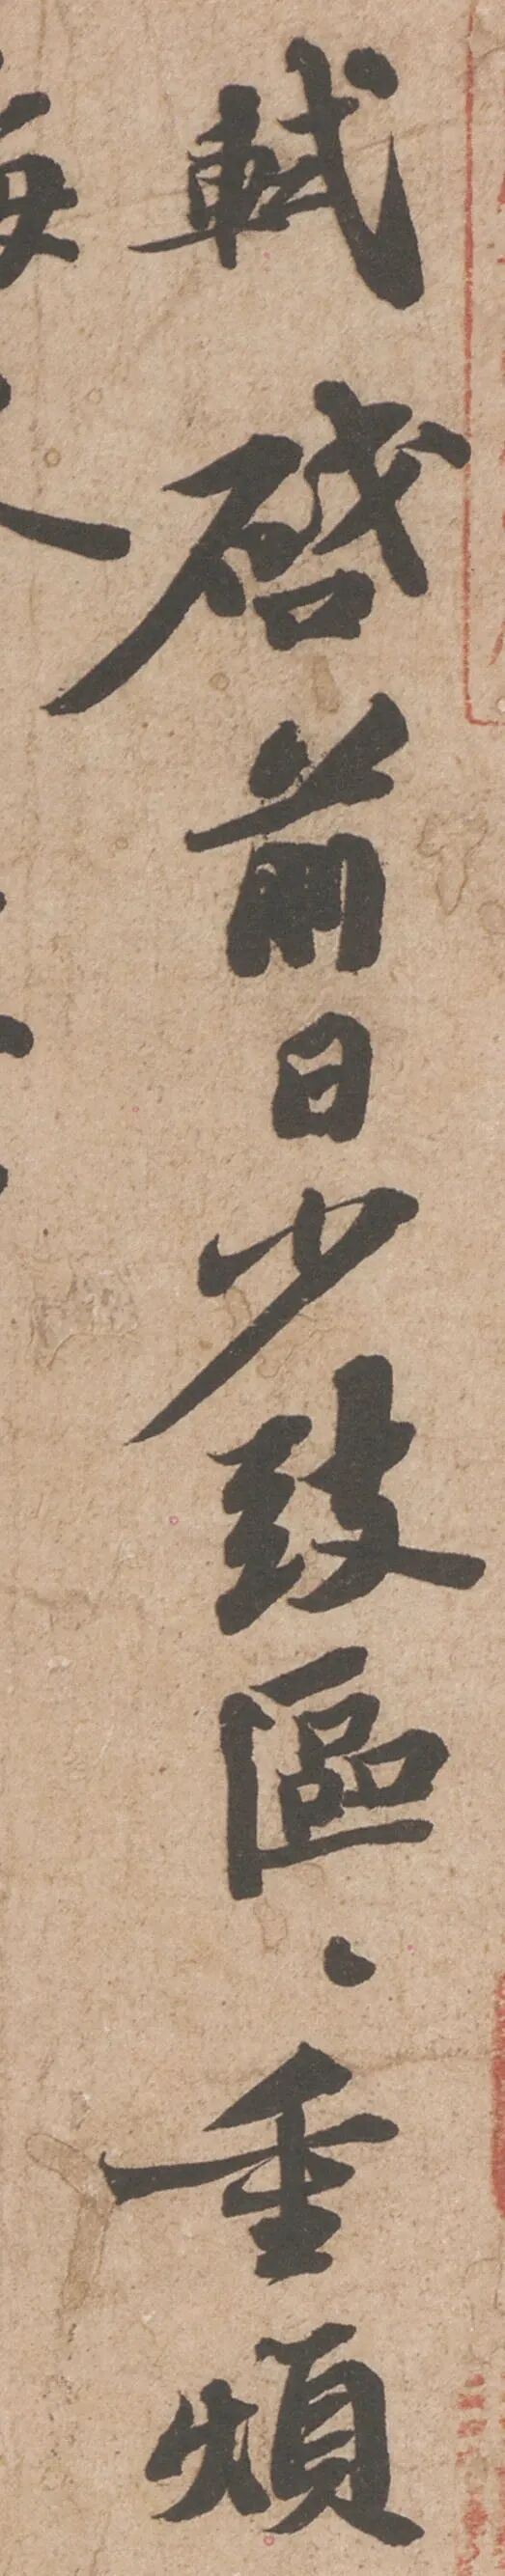 軾啓前日少致區〻重煩
誨